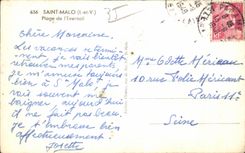 656 SAINT-MALO (I.-et-V.)
Plage de l'Eventail
Chère Marraine,
Les vacances se termi-
nent je vais bientôt
retrouver mes parents.
je m'amuse toujours
bien à St Malo, je
vais souvent me
baigner, aujourd'hui
il ne fait pas beau.
je t'embrasse bien
affectueusement.
Josette
Mme Odette Méricaux
10 rue Folie Méricourt
Paris 11e
Seine